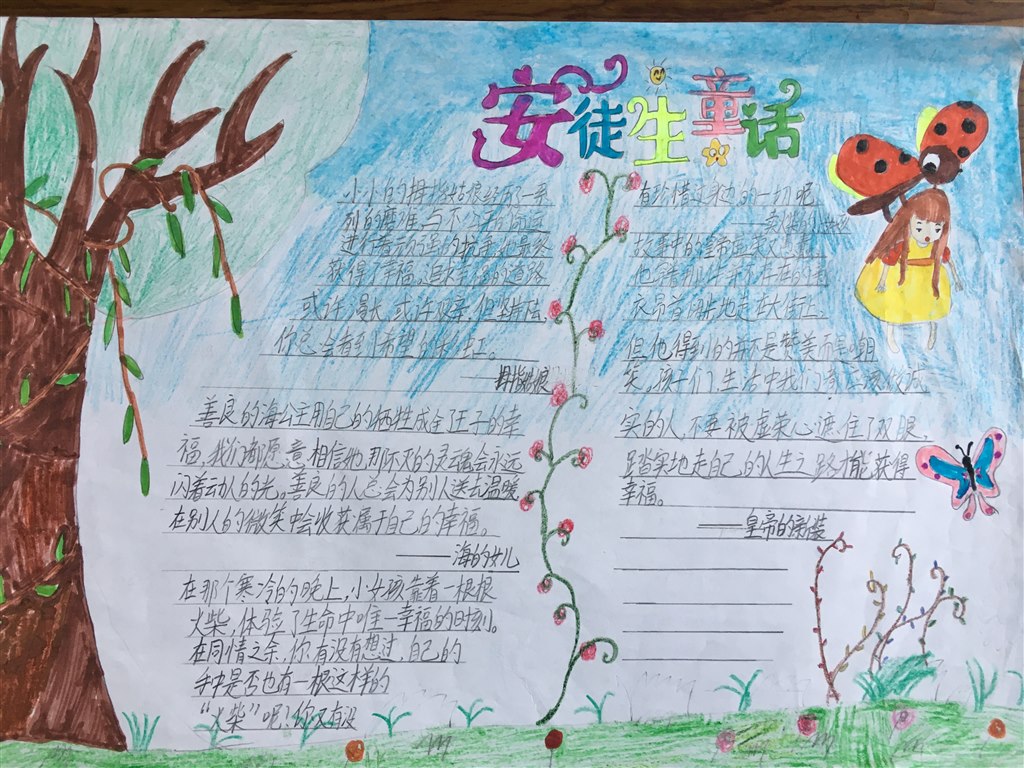 安徒生童话
小小的拇指姑娘经历了一系
列的磨难与不幸
进行着
获得了幸福。追求幸福的道路
或许漫长,或许艰辛,但坚持住,
你总会看到希望的
——拇指姑娘
善良的海公主用自己的牺牲成全了王子的幸
福,我们都愿意相信她那不灭的灵魂会永远
闪着动人的光。善良的人总会为别人送去温暖
在别人的微笑中会收获属于自己的幸福。
——海的女儿
在那个寒冷的晚上,小女孩靠着一根根
火柴,体验了生命中唯一幸福的时刻。
在同情之余,你有没有想过,自己的
手中是否也有一根这样的
“火柴”呢?你又有没
有珍惜过身边的一切呢
——卖火柴的小女孩
故事中的皇帝
衣
但他得到的并不是赞美而是嘲
笑,孩子们,生活中我们
实的人,不要被虚荣心遮住了双眼,
踏实地走自己的人生之路才能获得
幸福。
——皇帝的新装